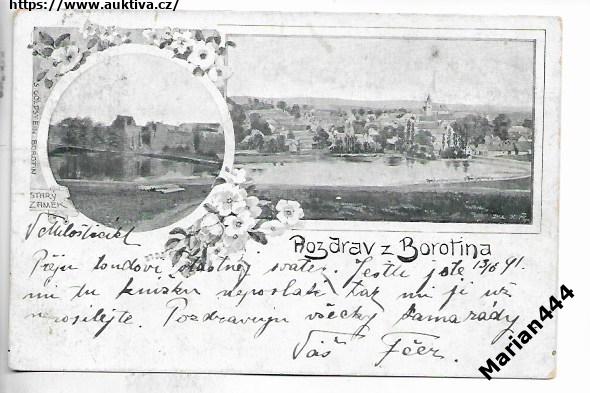 https://www.auktiva.cz/
S. GOLDSTEIN, BOROTÍN
STARÝ
ZÁMEK
Pozdrav z Borotína
V Milostíc
Přeju Tondovi šťastnej svátek. Jestli jste 13/6 41.
mi tu knížku neposlali tak mi ji už
neposílejte. Pozdravuju všecky kamarády
Váš
Marian444